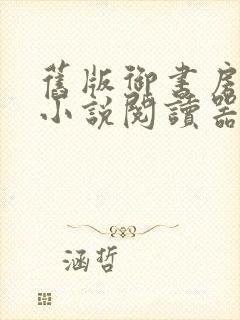 舊版御書房
小說閱讀器
涵哲